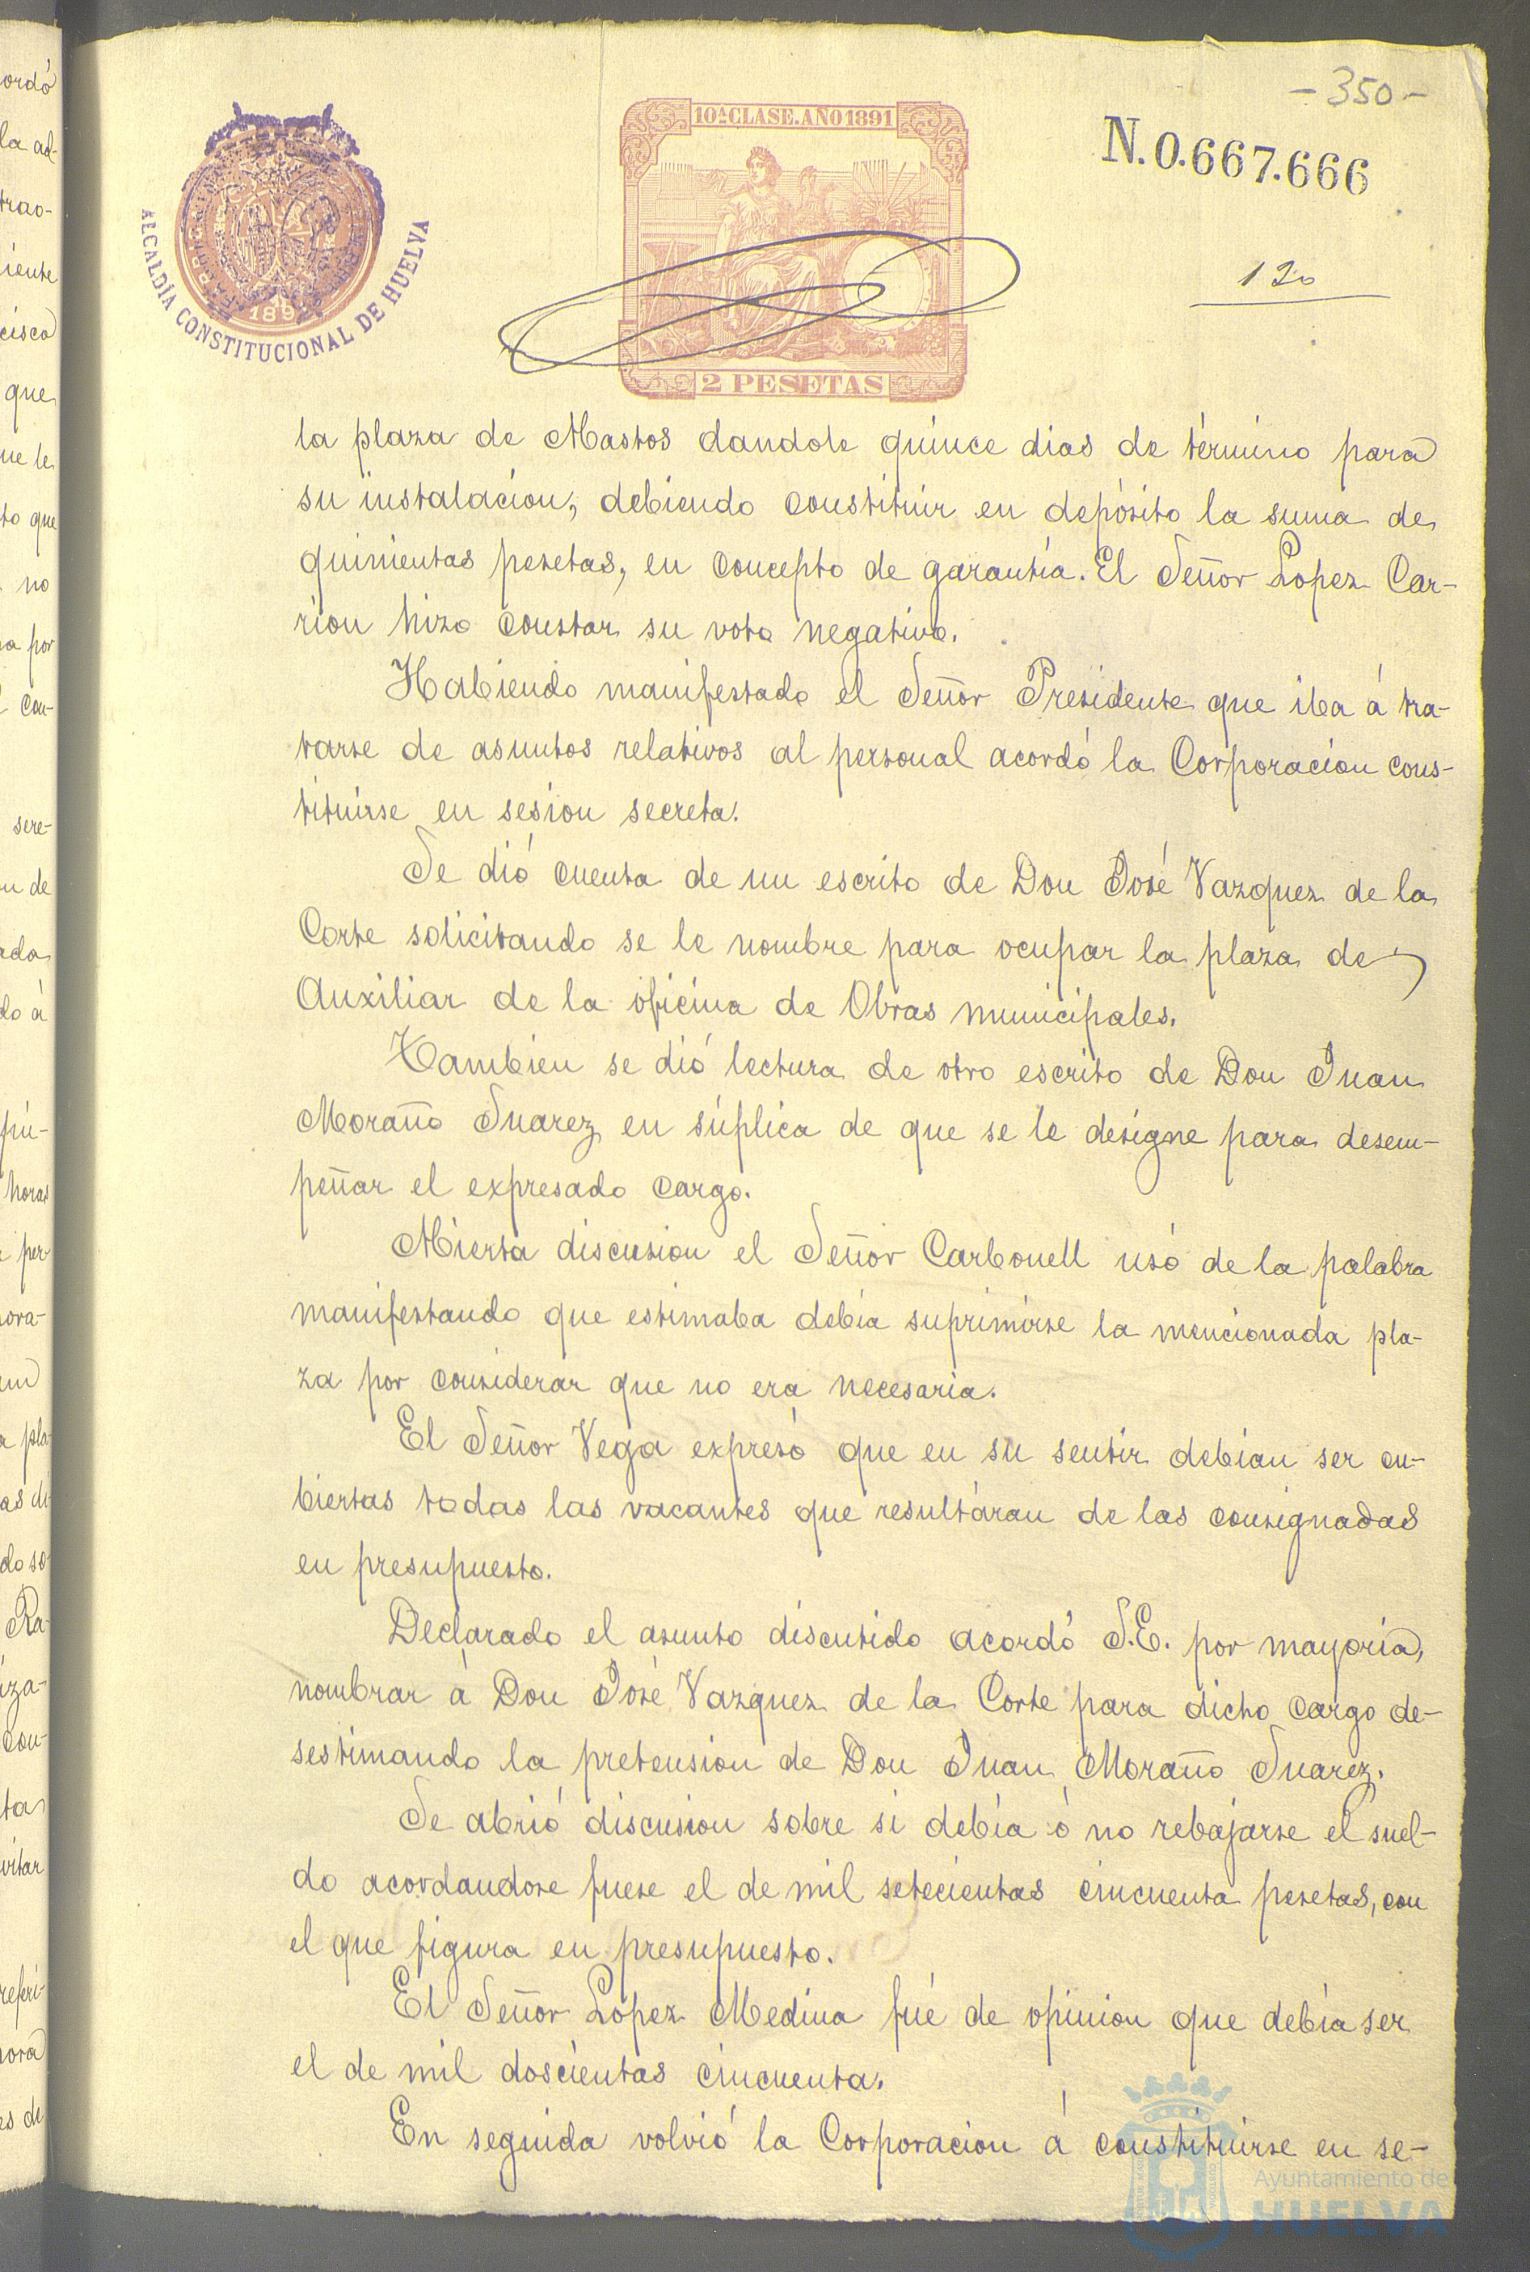 -350-
10ª CLASE. AÑO 1891
N.0.667.666
ALCALDÍA CONSTITUCIONAL DE HUELVA
189
120
2 PESETAS
la plaza de Abastos dandole quince dias de término para
su instalacion, debiendo constituir en depósito la suma de
quinientas pesetas, en concepto de garantía. El Señor Lopez Car-
rion hizo constar su voto negativo.
Habiendo manifestado el Señor Presidente que iba á tra-
tarse de asuntos relativos al personal acordó la Corporacion cons-
tituirse en sesion secreta.
Se dió cuenta de un escrito de Don José Vazquez de la
Corte solicitando se le nombre para ocupar la plaza de
Auxiliar de la oficina de Obras municipales.
Tambien se dió lectura de otro escrito de Don Juan
Moraño Suarez en súplica de que se le designe para desem-
peñar el expresado cargo.
Abierta discusion el Señor Carbonell usó de la palabra
manifestando que estimaba debía suprimirse la mencionada pla-
za por considerar que no era necesaria.
El Señor Vega expresó que en su sentir debian ser cu-
biertas todas las vacantes que resultáran de las consignadas
en presupuesto.
Declarado el asunto discutido acordó S.E. por mayoría,
nombrar á Don José Vazquez de la Corte para dicho cargo de-
sestimando la pretension de Don Juan Moraño Suarez.
Se abrió discusion sobre si debía ó no rebajarse el suel-
do acordandose fuese el de mil setecientas cincuenta pesetas, con
el que figura en presupuesto.
El Señor Lopez Medina fué de opinion que debía ser
el de mil doscientas cincuenta.
En seguida volvió la Corporacion á constituirse en se-
Ayuntamiento de
HUELVA